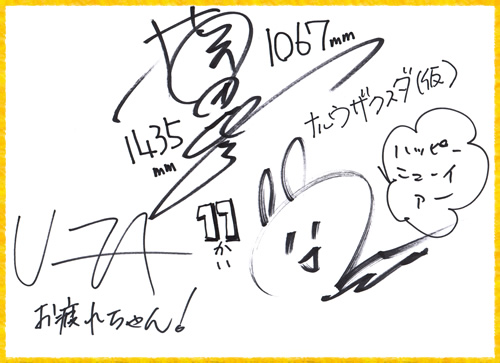 1067mm
1435
mm
ホルウザクスダ(仮)
ハッピー
ニューイ
アー
11
かい
お疲れちゃん!